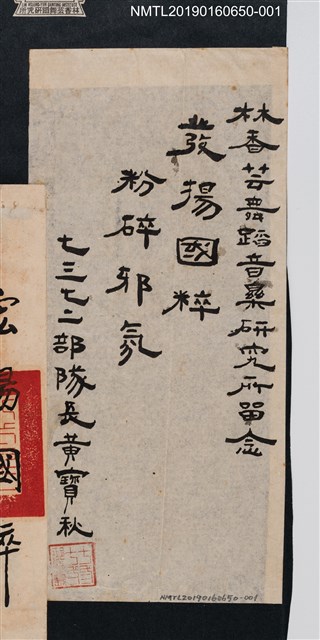 NMTL20190160650-001
林香芸舞蹈音樂研究所留念
發揚國粹
粉碎邪氛
七三七二部隊長黃寶秋
宏揚國粹
NMTL20190160650-001